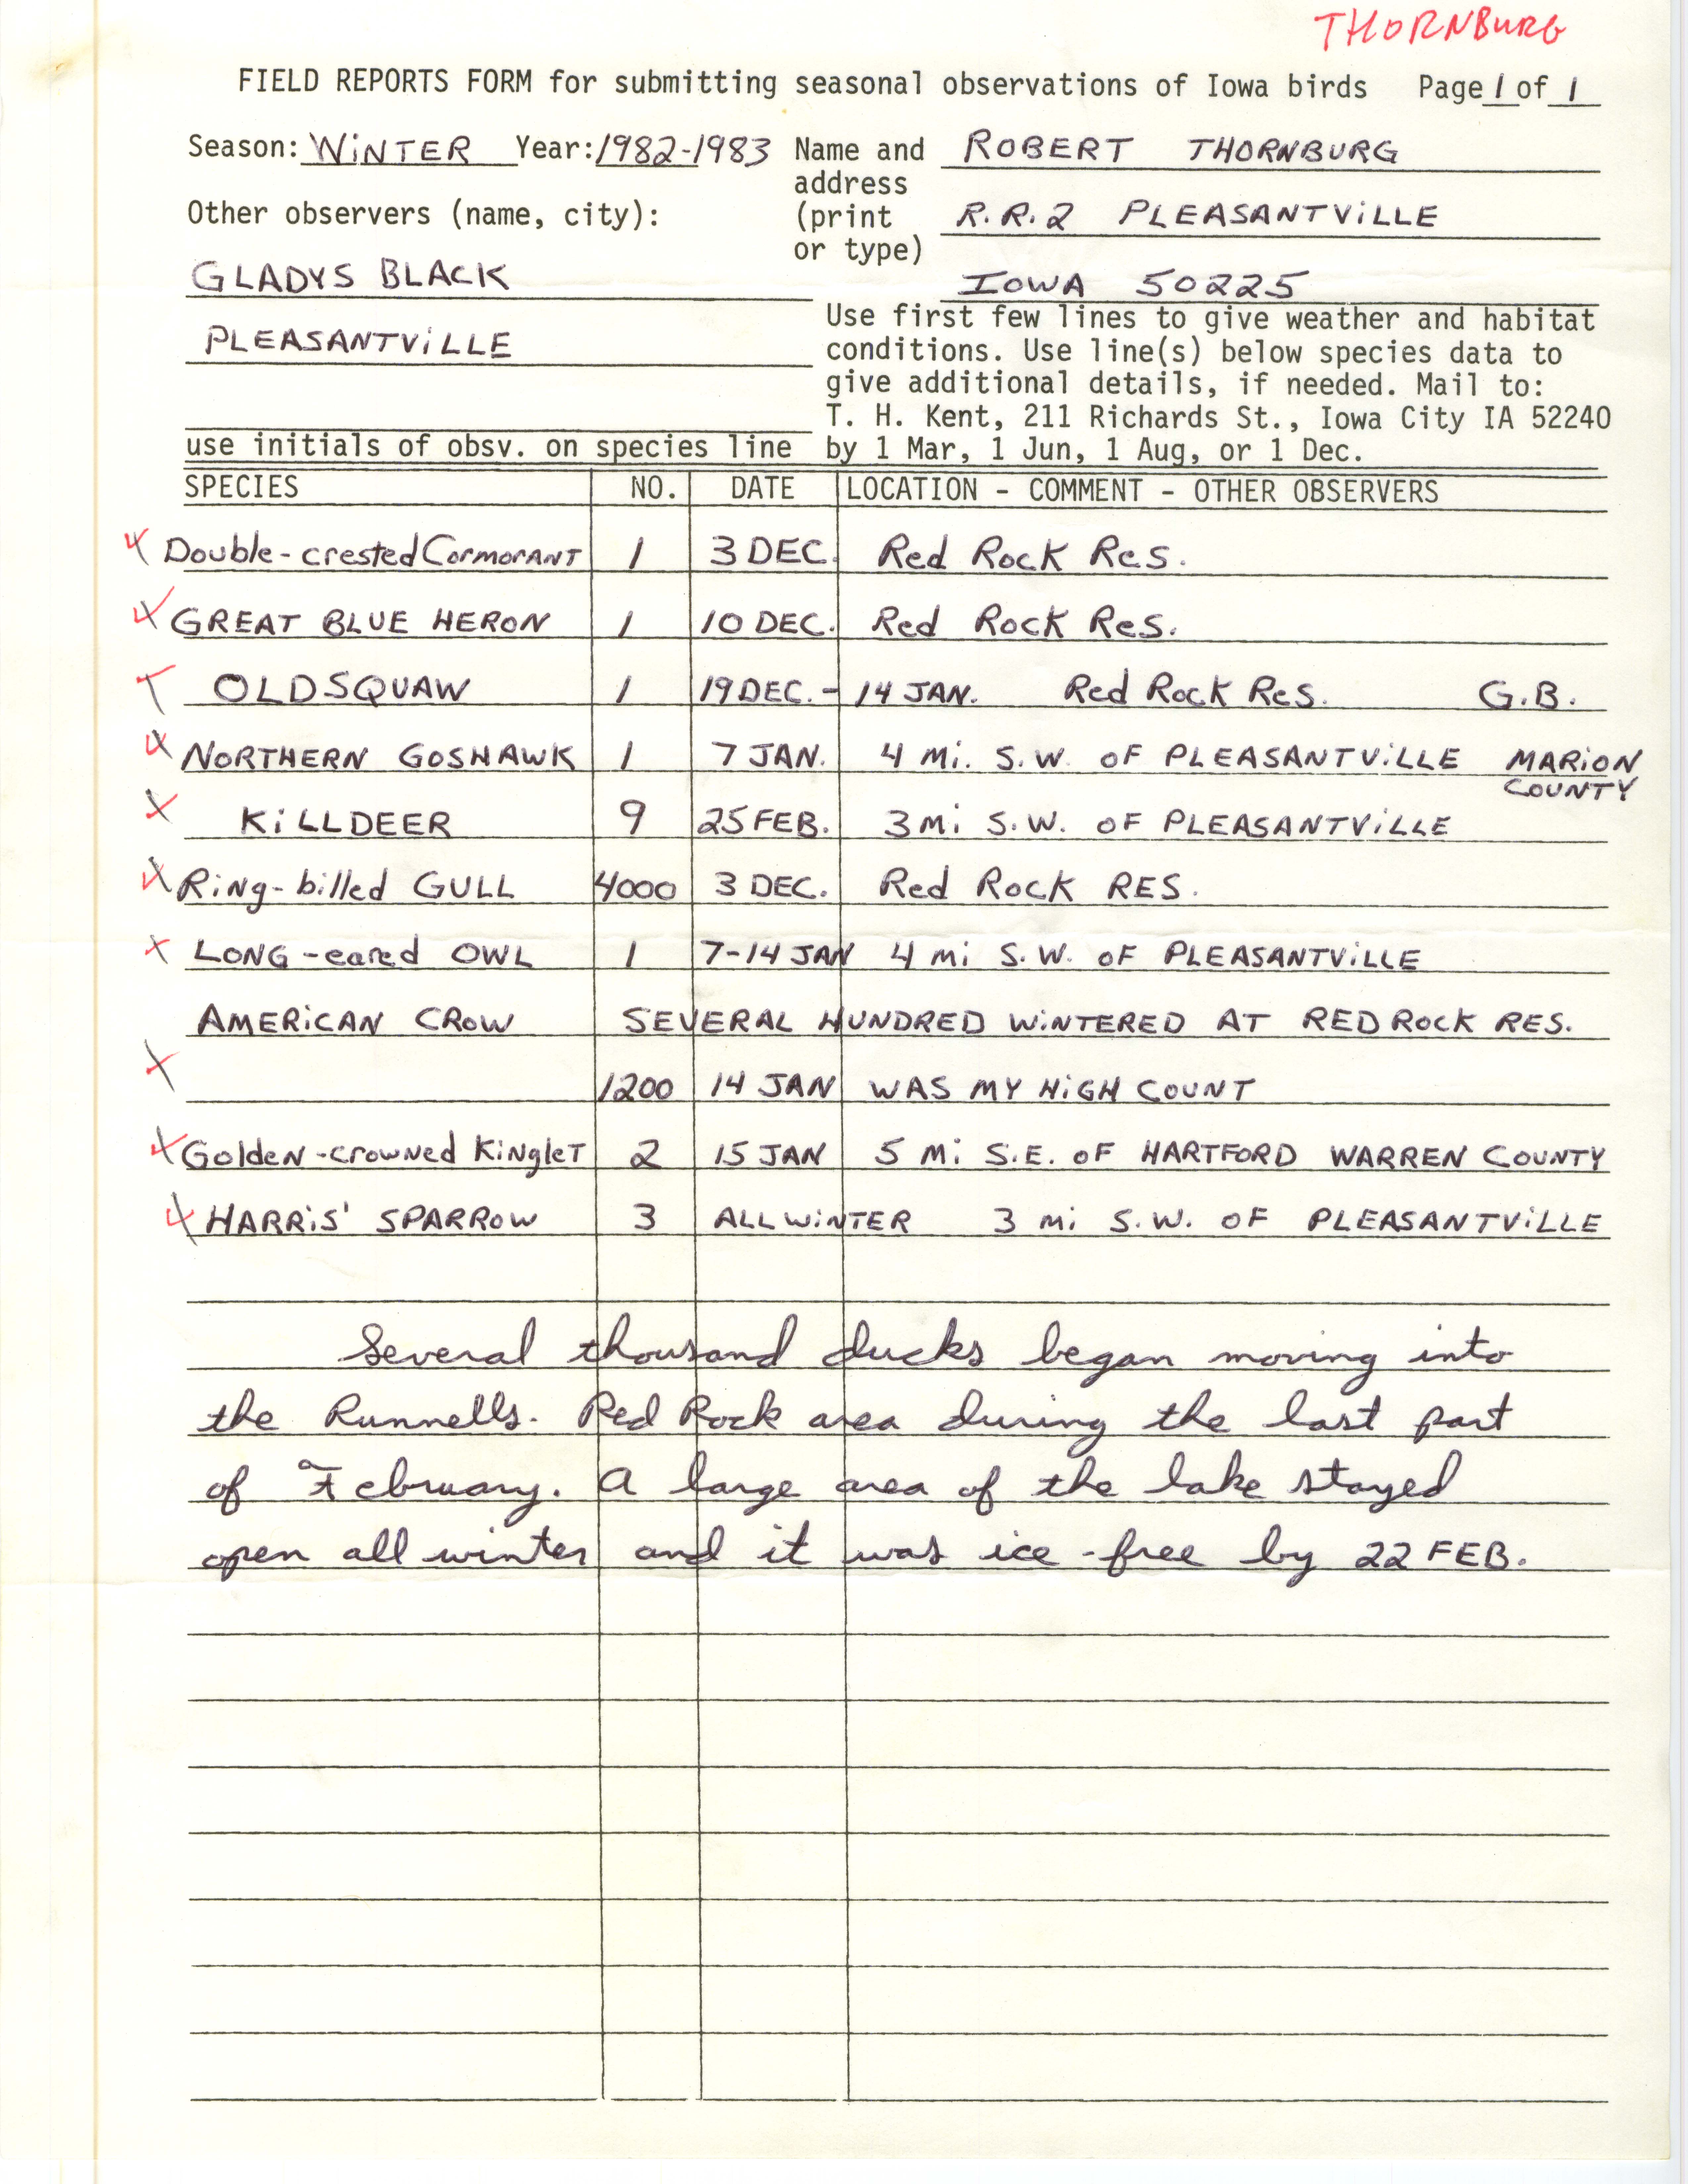 THORNBURG
FIELD REPORTS FORM for submitting seasonal observations of Iowa birds Page 1 of 1
Season: WINTER Year: 1982-1983 Name and ROBERT THORNBURG
address
Other observers (name, city): (print R.R.2 PLEASANTVILLE
or type)
GLADYS BLACK IOWA 50225
PLEASANTVILLE
Use first few lines to give weather and habitat
conditions. Use line(s) below species data to
give additional details, if needed. Mail to:
T. H. Kent, 211 Richards St., Iowa City IA 52240
use initials of obsv. on species line by 1 Mar, 1 Jun, 1 Aug, or 1 Dec.
SPECIES NO. DATE LOCATION - COMMENT - OTHER OBSERVERS
Double-crested Cormorant 1 3 DEC. Red Rock Res.
GREAT BLUE HERON 1 10 DEC. Red Rock Res.
OLDSQUAW 1 19 DEC. - 14 JAN. Red Rock Res. G.B.
NORTHERN GOSHAWK 1 7 JAN. 4 mi. S.W. OF PLEASANTVILLE MARION
COUNTY
KILLDEER 9 25 FEB. 3 mi S.W. OF PLEASANTVILLE
Ring-billed GULL 4000 3 DEC. Red Rock RES.
LONG-eared OWL 1 7-14 JAN 4 mi S.W. OF PLEASANTVILLE
AMERICAN CROW SEVERAL HUNDRED WINTERED AT RED ROCK RES.
1200 14 JAN WAS MY HIGH COUNT
Golden-crowned Kinglet 2 15 JAN 5 mi S.E. OF HARTFORD WARREN COUNTY
HARRIS' SPARROW 3 ALL WINTER 3 mi S.W. OF PLEASANTVILLE
Several thousand ducks began moving into
the Runnells. Red Rock area during the last part
of February. A large area of the lake stayed
open all winter and it was ice-free by 22 FEB.